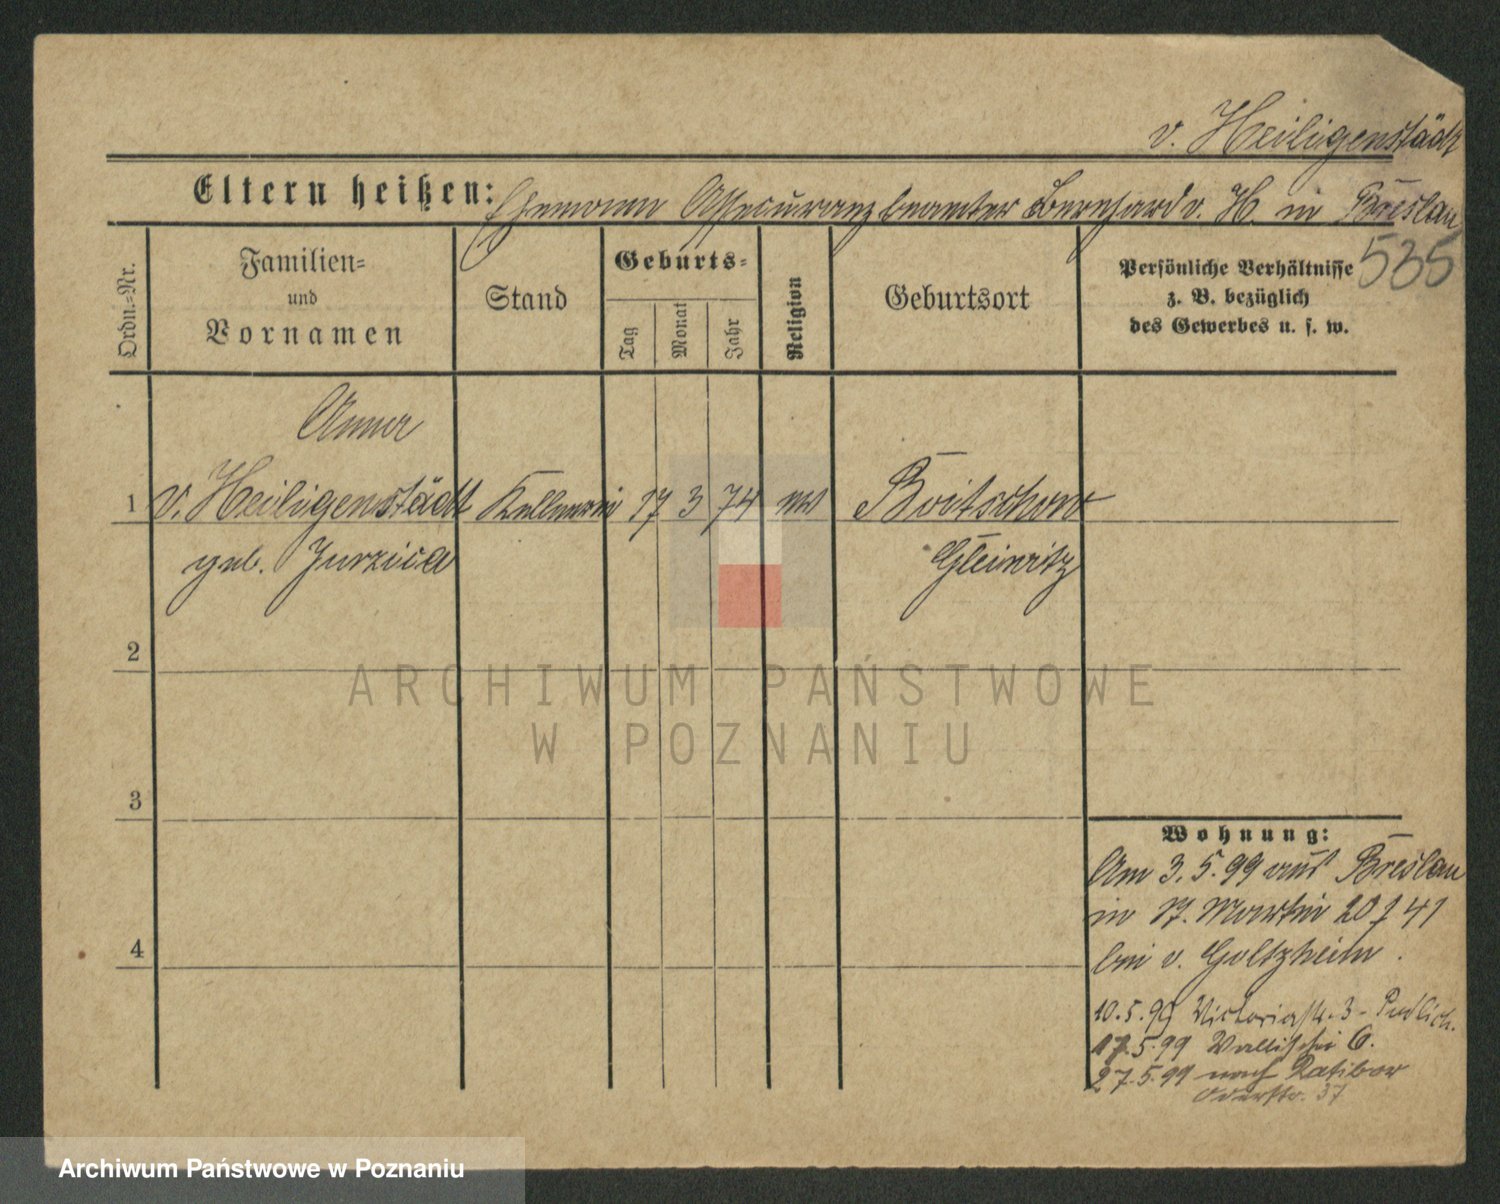 v. Heiligenstädt
Eltern heißen: Ehemann Assecuranzbeamter Bernhard v. H. in Breslau
535
Ordn.=Nr.
Familien=
und
Vornamen
Stand
Geburts=
Tag
Monat
Jahr
Religion
Geburtsort
Persönliche Verhältnisse
z. B. bezüglich
des Gewerbes u. s. w.
Anna
1 v. Heiligenstädt Kellnerin 17 3 74 Boitschow
geb. Jurzica Gleiwitz
2
ARCHIWUM PAŃSTWOWE
W POZNANIU
3
4
Wohnung:
Am 3.5.99 aus Breslau
in St. Martin 20 41
bei v. Goltzheim.
10.5.99 Victoriastr. 3 -
17.5.99 Wallischei 6.
27.5.99 nach Ratibor
Oderstr. 37
Archiwum Państwowe w Poznaniu